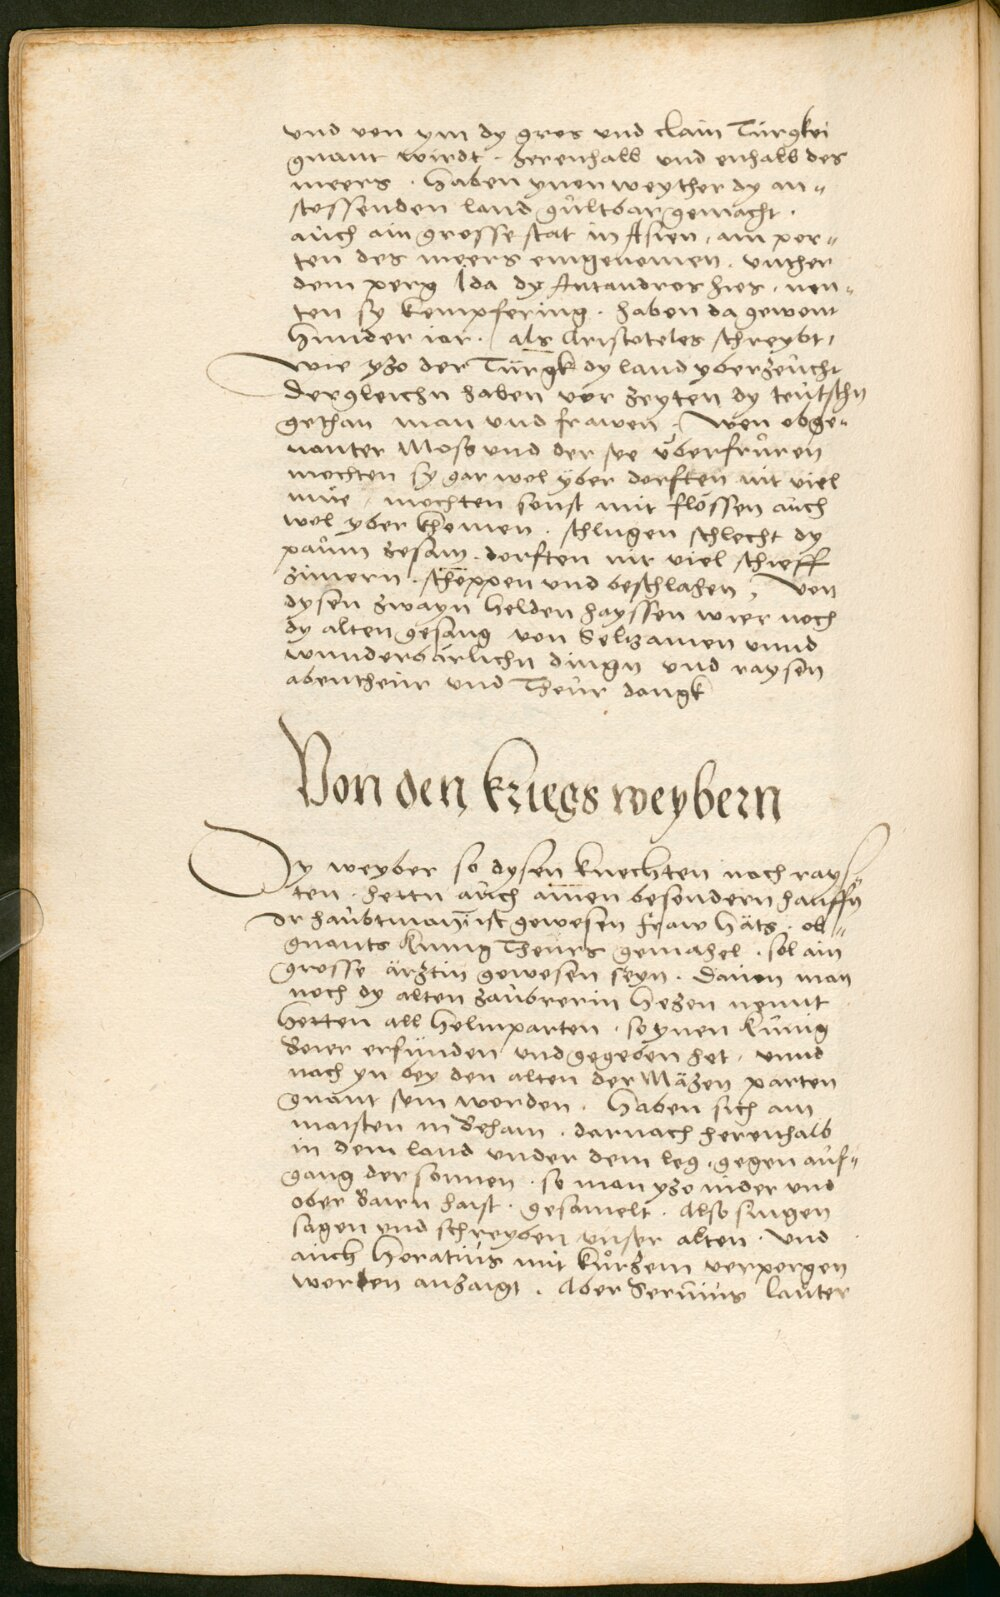 vnd von ym dy gros vnd clain Türgkei
gnant wirdt . herenhalb vnd enhalb des
meers . Haben ynen weyther dy an⸗
stossenden land gültbar gemacht .
auch ain grosse stat in Asien , am por⸗
ten des meers eingenomen . vnther
dem perg Ida dy Antandros hies , nen⸗
ten sy kempfering . haben da gewont
hunder iar . Als Aristoteles schreybt ,
wie yzo der Türgk dy land yberzeucht
dergleichn haben vor zeyten dy teutschn
gethan man vnd frawen . Wen obge⸗
nanter Mosß vnd der see vberfruren
mochten sy gar wol yber dorften nit viel
mue , mochten sonst mit flössen auch
wol yber khomen . schlugen schlecht dy
paum zesam . dorften nit viel schieff
zimern . schoppen vnd beschlahen , Von
dysen zwayn helden hayssen wier noch
dy alten gesang von Selzamen vnnd
wunderbarlichn dingn vnd raysen
abentheür vnd Theur dangk
Von den kriegs weybern
Dy weyber so dysen knechten noch rays⸗
ten . hettn auch ainen besondern hauffn
Dr haubtman ist gewesen fraw Häts . ob⸗
gnants Kunig Theürs gemahel . sol ain
grosse ärztin gewesen seyn . Dauon man
noch dy alten zaubrerin Hezen nennt
hetten all helmparten . so ynen Künig
Beier erfunden vnd gegeben het . vnnd
nach yn bey den alten der Mäzen parten
gnant sein worden . Haben sich am
maisten in Beham . darnach herenthalb
in dem land vnder dem leg . gegen auf⸗
gang der sonnen . so man yzo nider vnd
ober Bairn haist . gesamelt . Also singen
sagen vnd schreyben vnser alten . Vnd
auch Horatius mit kurzem verporgen
worten anzaigt . Aber Seruius lauter